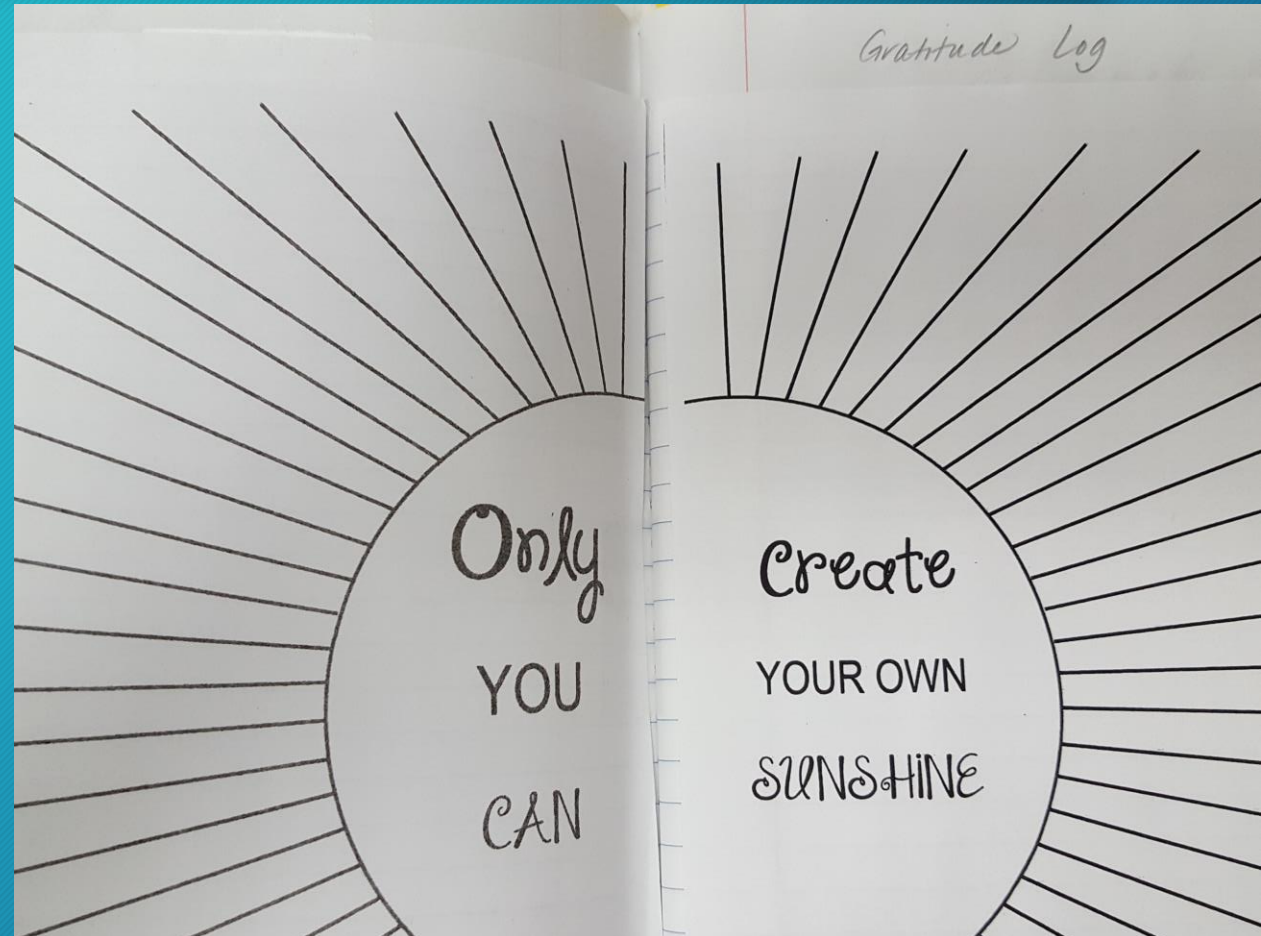 Gratitude Log
Only
YOU
CAN
Create
YOUR OWN
SUNSHINE